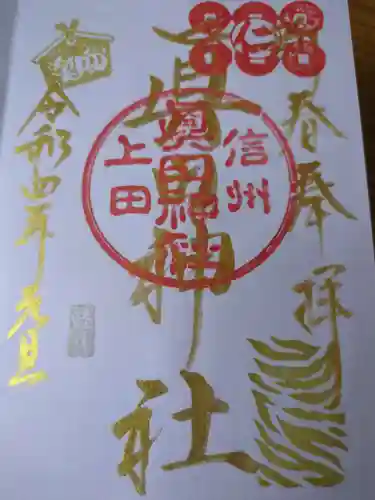 春奉拝
眞田神社
信州
眞田神社
上田
令和四年元旦